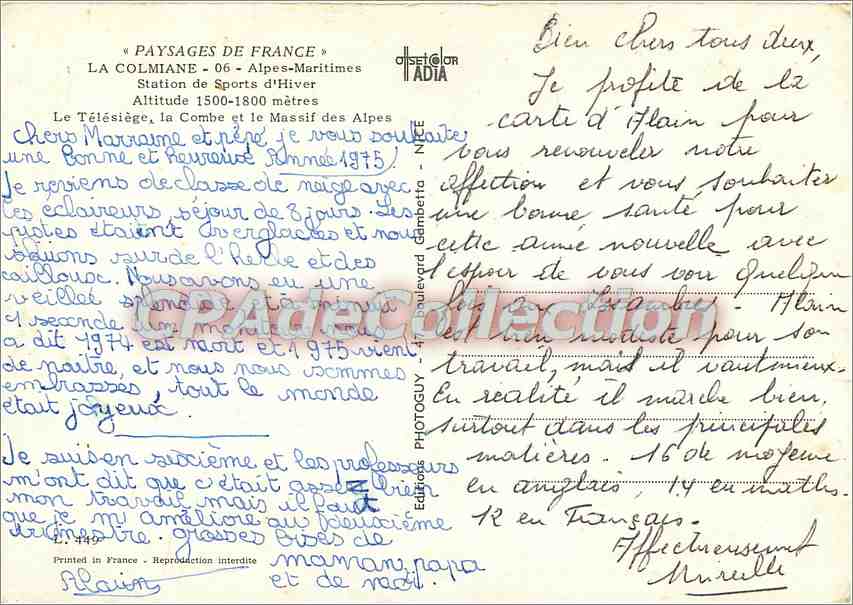 « PAYSAGES DE FRANCE »
LA COLMIANE - 06 - Alpes-Maritimes
Station de Sports d'Hiver
Altitude 1500-1800 mètres
Le Télésiège, la Combe et le Massif des Alpes
offset color
ADIA
chers Marraine et pépé je vous souhaite
une bonne et heureuse Année 1975
Je reviens de classe de neige avec
les éclaireurs, séjour de 8 jours. Les
pistes étaient verglacées et nous
skiions sur de l'herbe et des
cailloux. Nous avons eu une
veillée splendide et à minuit
1 seconde un moniteur nous
a dit 1974 est mort et 1975 vient
de naître, et nous nous sommes
embrassés, tout le monde
était joyeux.
Je suis en sixième et les professeurs
m'ont dit que c'était assez bien
mon travail mais il faut
que je m'améliore au deuxième
trimestre. grosses bises de
maman, papa
et de moi.
Alain
L. 449
Printed in France - Reproduction interdite
Editions PHOTOGUY - 47, boulevard Gambetta - NICE
Bien chers tous deux,
Je profite de la
carte d'Alain pour
vous renouveler notre
affection et vous souhaiter
une bonne santé pour
cette année nouvelle avec
l'espoir de vous voir quelque
fois - Alain
est bien modeste pour son
travail, mais il vaut mieux.
En réalité il marche bien,
surtout dans les principales
matières. 16 de moyenne
en anglais, 14 en maths.
12 en Français.
Affectueusement
Mireille
CPAdeCollection